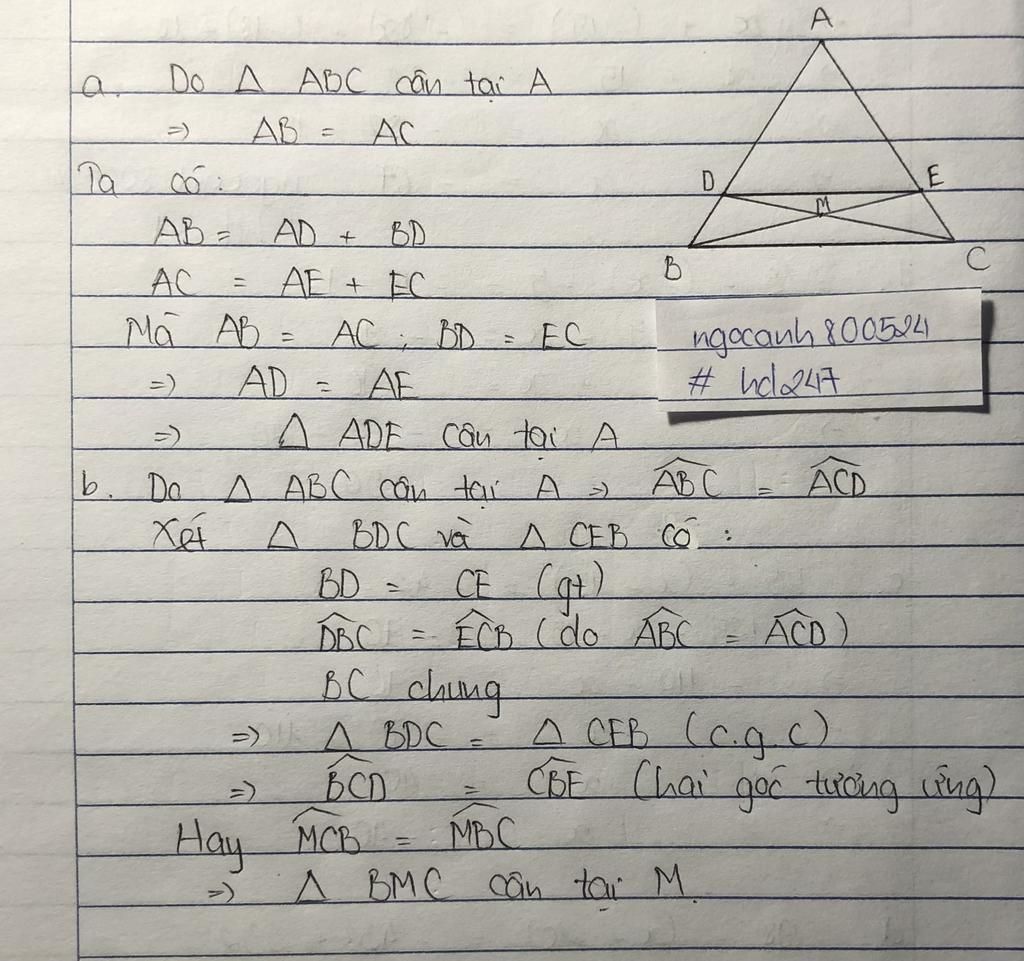 A
a. Do Δ ABC cân tại A
=> AB = AC
Ta có:
D
E
M
AB = AD + BD
B
C
AC = AE + EC
Mà AB = AC ; BD = EC
ngocanh800524
# hd247
=> AD = AE
=> Δ ADE cân tại A
b. Do Δ ABC cân tại A => \widehat{ABC} = \widehat{ACD}
Xét Δ BDC và Δ CEB có :
BD = CE (gt)
\widehat{DBC} = \widehat{ECB} (do \widehat{ABC} = \widehat{ACD})
BC chung
=> Δ BDC = Δ CEB (c.g.c)
=> \widehat{BCD} = \widehat{CBE} (hai góc tương ứng)
Hay \widehat{MCB} = \widehat{MBC}
=> Δ BMC cân tại M.